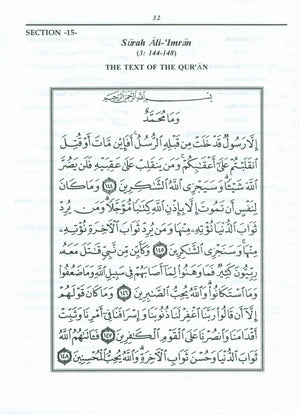 32
SECTION -15-
Sūrah Āli-'Imrān
(3: 144-148)
THE TEXT OF THE QUR'ĀN
بِسْمِ اللَّهِ الرَّحْمَٰنِ الرَّحِيمِ
وَمَا مُحَمَّدٌ
إِلَّا رَسُولٌ قَدْ خَلَتْ مِن قَبْلِهِ الرُّسُلُ أَفَإِيْن مَّاتَ أَوْ قُتِلَ
انقَلَبْتُمْ عَلَىٰ أَعْقَابِكُمْ وَمَن يَنقَلِبْ عَلَىٰ عَقِبَيْهِ فَلَن يَضُرَّ
اللَّهَ شَيْئًا وَسَيَجْزِي اللَّهُ الشَّاكِرِينَ ١٤٤ وَمَا كَانَ
لِنَفْسٍ أَن تَمُوتَ إِلَّا بِإِذْنِ اللَّهِ كِتَابًا مُّؤَجَّلًا وَمَن يُرِدْ
ثَوَابَ الدُّنْيَا نُؤْتِهِ مِنْهَا وَمَن يُرِدْ ثَوَابَ الْآخِرَةِ نُؤْتِهِ
مِنْهَا وَسَنَجْزِي الشَّاكِرِينَ ١٤٥ وَكَأَيِّن مِّن نَّبِيٍّ قَاتَلَ مَعَهُ
رِبِّيُّونَ كَثِيرٌ فَمَا وَهَنُوا لِمَا أَصَابَهُمْ فِي سَبِيلِ اللَّهِ وَمَا ضَعُفُوا
وَمَا اسْتَكَانُوا وَاللَّهُ يُحِبُّ الصَّابِرِينَ ١٤٦ وَمَا كَانَ قَوْلَهُمْ
إِلَّا أَن قَالُوا رَبَّنَا اغْفِرْ لَنَا ذُنُوبَنَا وَإِسْرَافَنَا فِي أَمْرِنَا وَثَبِّتْ
أَقْدَامَنَا وَانصُرْنَا عَلَى الْقَوْمِ الْكَافِرِينَ ١٤٧ فَآتَاهُمُ اللَّهُ
ثَوَابَ الدُّنْيَا وَحُسْنَ ثَوَابِ الْآخِرَةِ وَاللَّهُ يُحِبُّ الْمُحْسِنِينَ ١٤٨